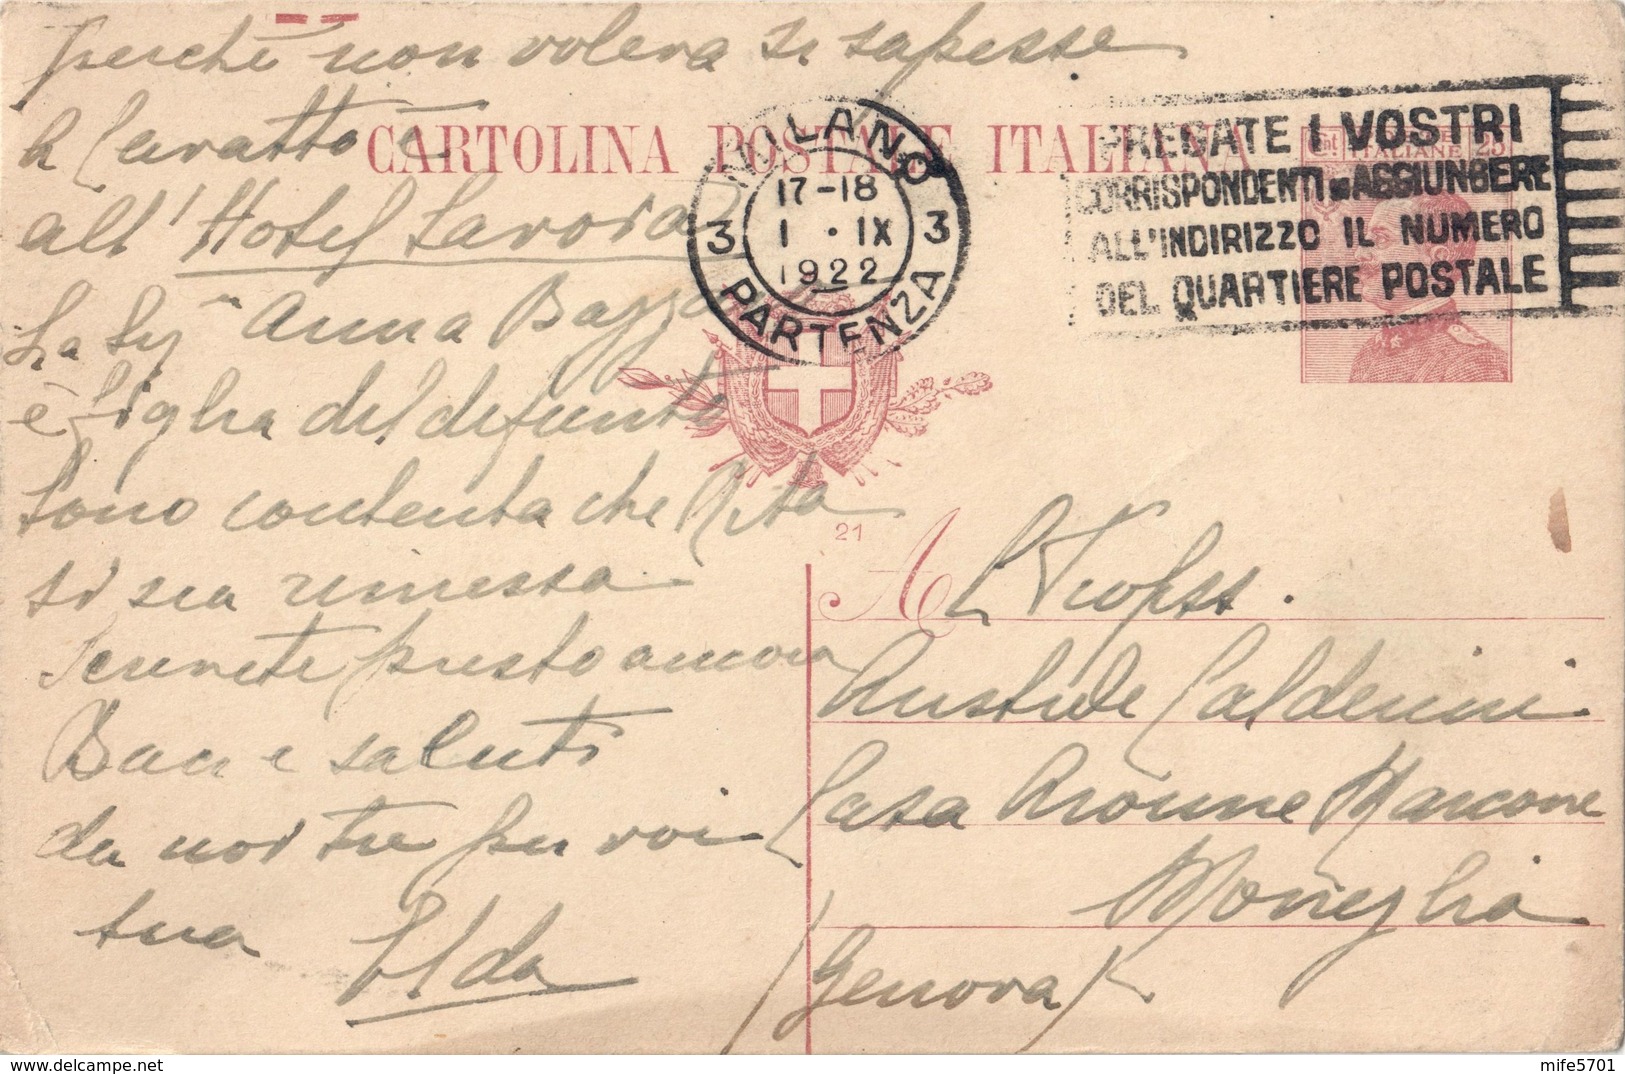 perché non voleva si sapesse
CARTOLINA POSTALE ITALIANA
all'Hotel Savoia
La Sig Anna
è figlia del defunto
Sono contenta che Rita
si sia rimessa
Scrivete presto ancora
Baci e saluti
da noi tre per voi
tua Elda
MILANO
PARTENZA
3 3
17-18
1 · IX
1922
PREGATE I VOSTRI
CORRISPONDENTI DI AGGIUNGERE
ALL'INDIRIZZO IL NUMERO
DEL QUARTIERE POSTALE
Cent. ITALIANE 25
21
A
Aristide Calderini
Casa Marcone
Moneglia
(Genova)
delcampe.net
mife5701